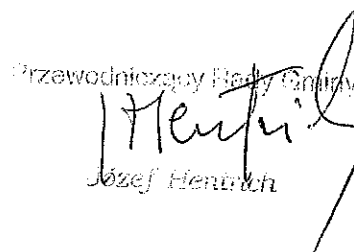 Przewodniczący Rady Gminy
JHentrich
Józef Hentrich